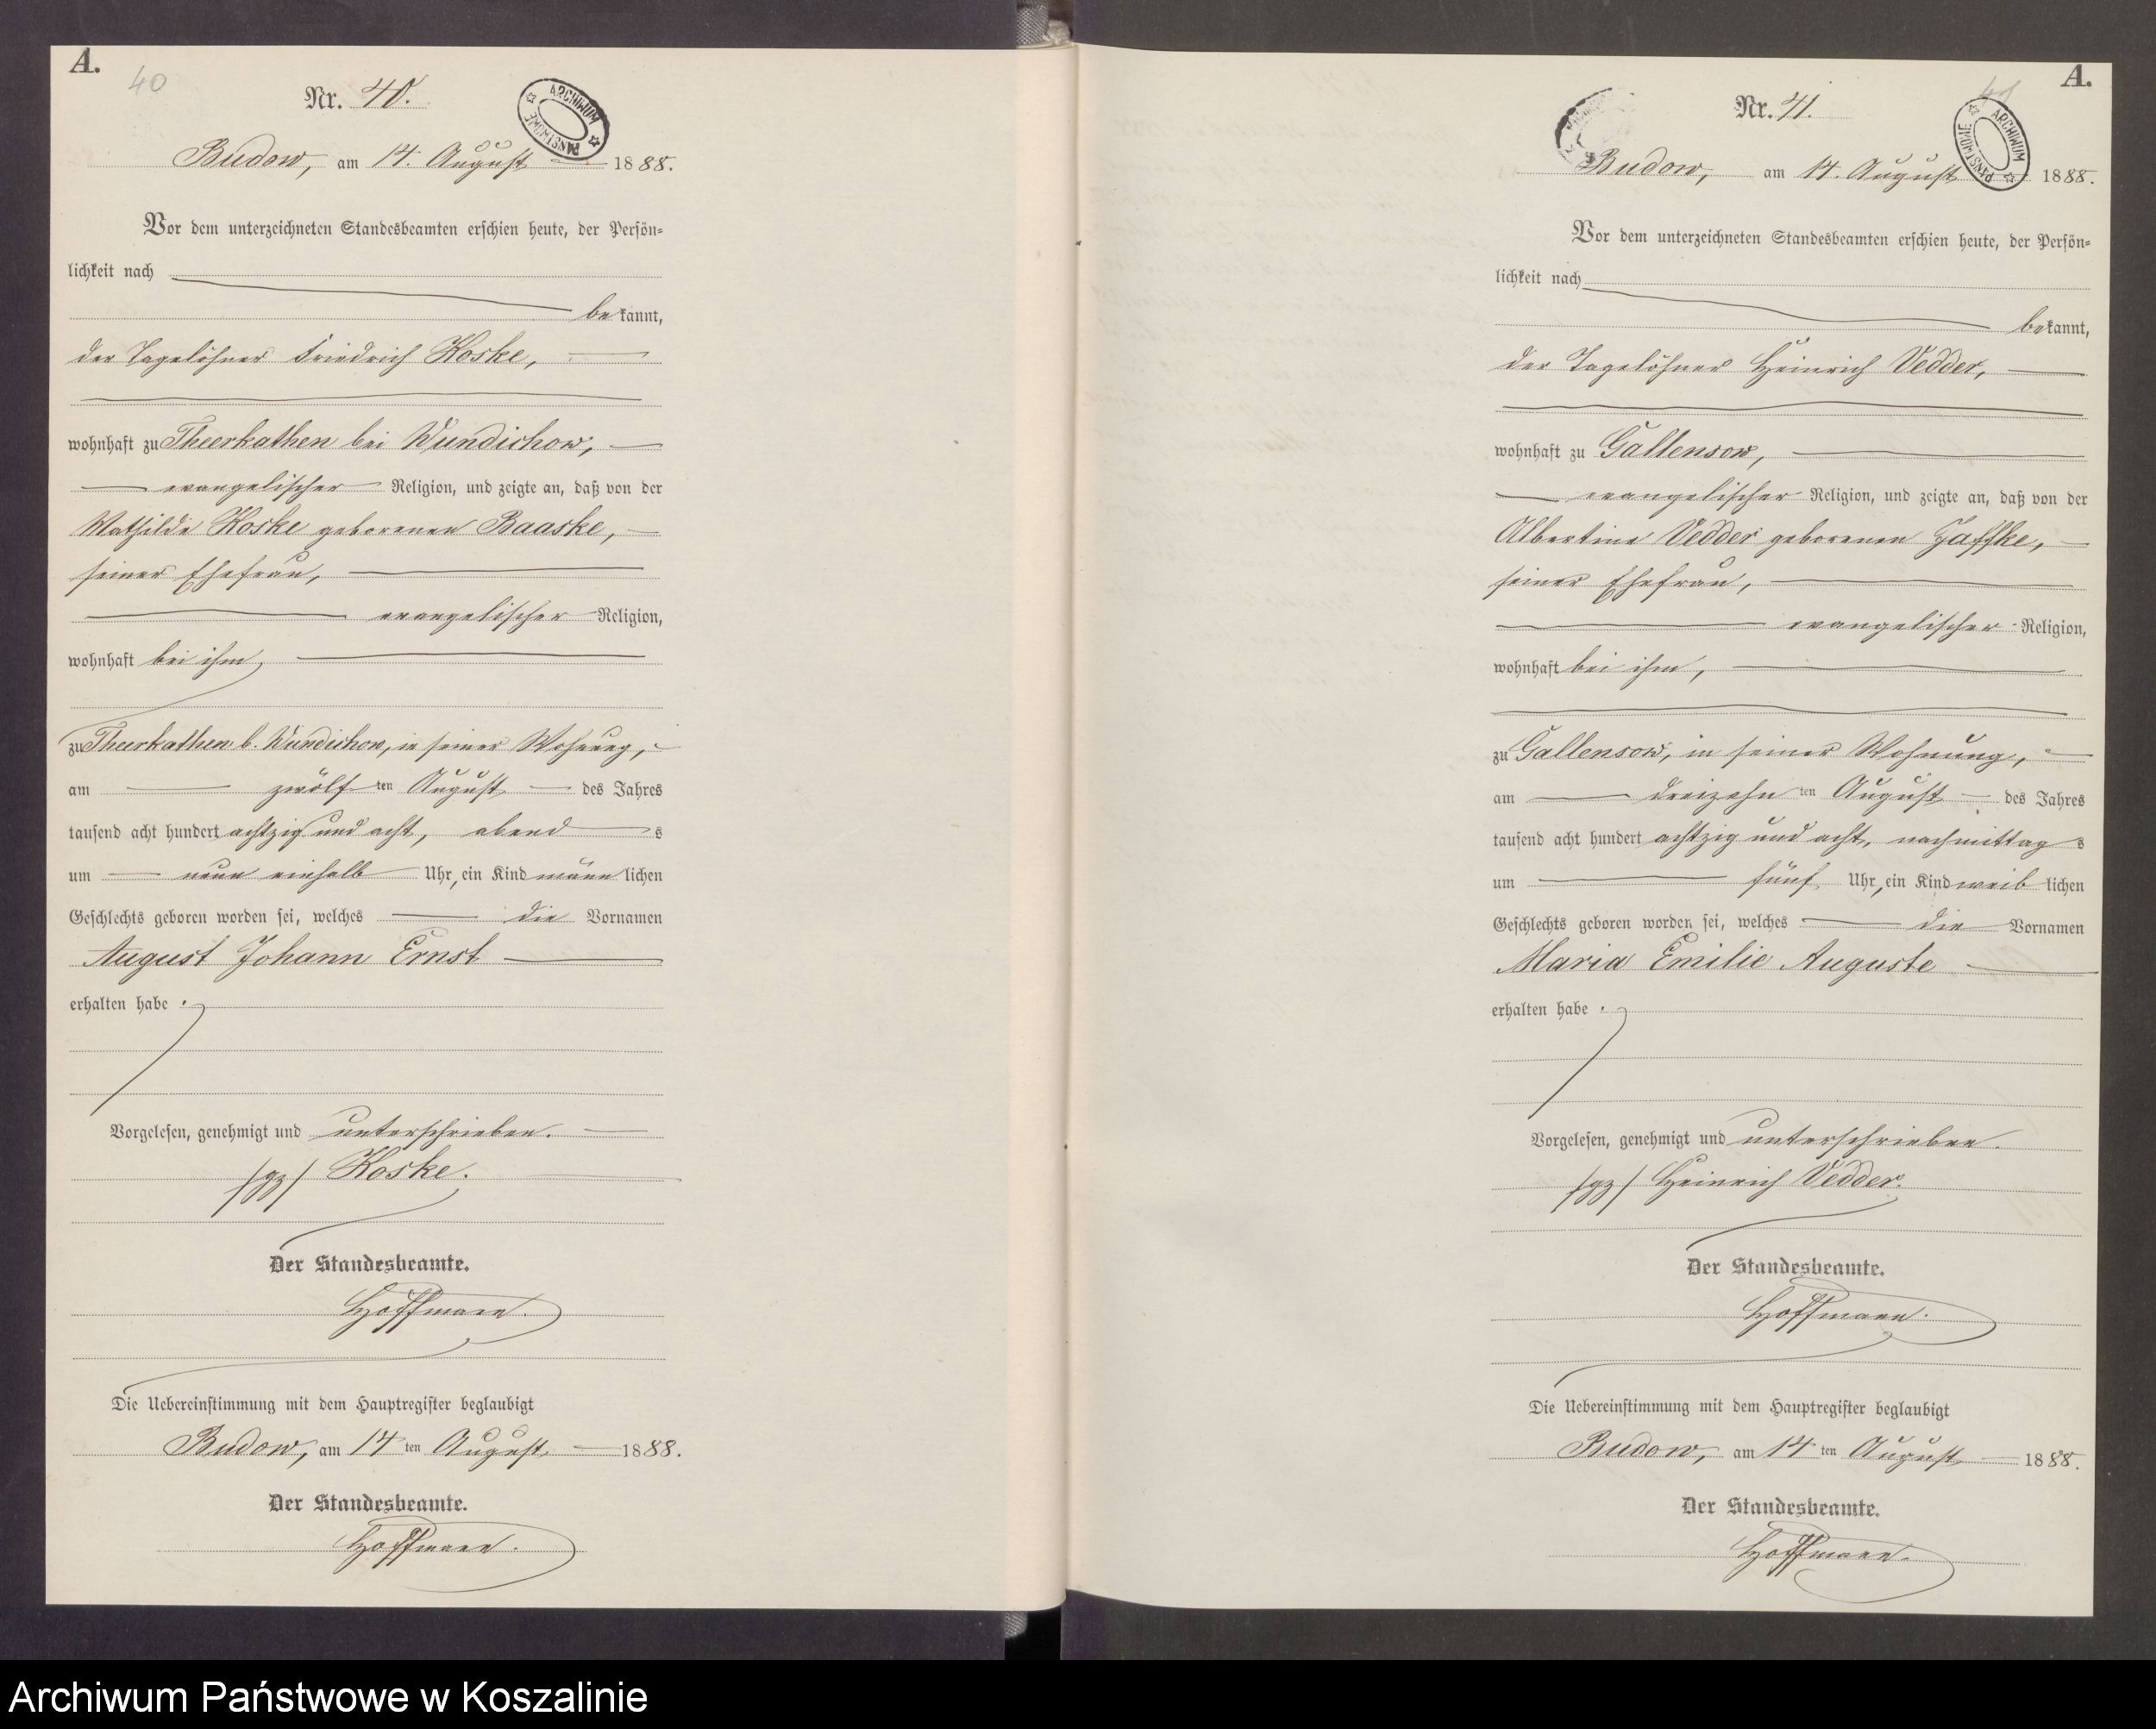 A.
40
Nr. 40.
ARCHIWUM PAŃSTWOWE
Budow, am 14. August 1888.
Vor dem unterzeichneten Standesbeamten erschien heute, der Persön-
lichkeit nach
bekannt,
der Tagelöhner Friedrich Koske,
wohnhaft zu Theerkathen bei Wundichow,
evangelischer Religion, und zeigte an, daß von der
Mathilde Koske geborenen Baaske,
seiner Ehefrau,
evangelischer Religion,
wohnhaft bei ihm,
zu Theerkathen b. Wundichow, in seiner Wohnung,
am zwölften August des Jahres
tausend acht hundert achtzig und acht, abends
um neun einhalb Uhr, ein Kind männlichen
Geschlechts geboren worden sei, welches die Vornamen
August Johann Ernst
erhalten habe.
Vorgelesen, genehmigt und unterschrieben.
/gz/ Koske.
Der Standesbeamte.
Hoffmann.
Die Uebereinstimmung mit dem Hauptregister beglaubigt
Budow, am 14ten August 1888.
Der Standesbeamte.
Hoffmann.
A.
41
Nr. 41.
ARCHIWUM PAŃSTWOWE
Budow, am 14. August 1888.
Vor dem unterzeichneten Standesbeamten erschien heute, der Persön-
lichkeit nach
bekannt,
der Tagelöhner Heinrich Vedder,
wohnhaft zu Gallensow,
evangelischer Religion, und zeigte an, daß von der
Albertine Vedder geborenen Jaffke,
seiner Ehefrau,
evangelischer Religion,
wohnhaft bei ihm,
zu Gallensow, in seiner Wohnung,
am dreizehnten August des Jahres
tausend acht hundert achtzig und acht, nachmittags
um fünf Uhr, ein Kind weiblichen
Geschlechts geboren worden sei, welches die Vornamen
Maria Emilie Auguste
erhalten habe.
Vorgelesen, genehmigt und unterschrieben.
/gz/ Heinrich Vedder.
Der Standesbeamte.
Hoffmann.
Die Uebereinstimmung mit dem Hauptregister beglaubigt
Budow, am 14ten August 1888.
Der Standesbeamte.
Hoffmann.
Archiwum Państwowe w Koszalinie